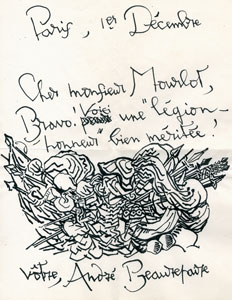 Paris, 1er Décembre
Cher monsieur Mourlot,
Bravo! Voici une "légion-
honneur" bien méritée!
vôtre, André Beaurepaire